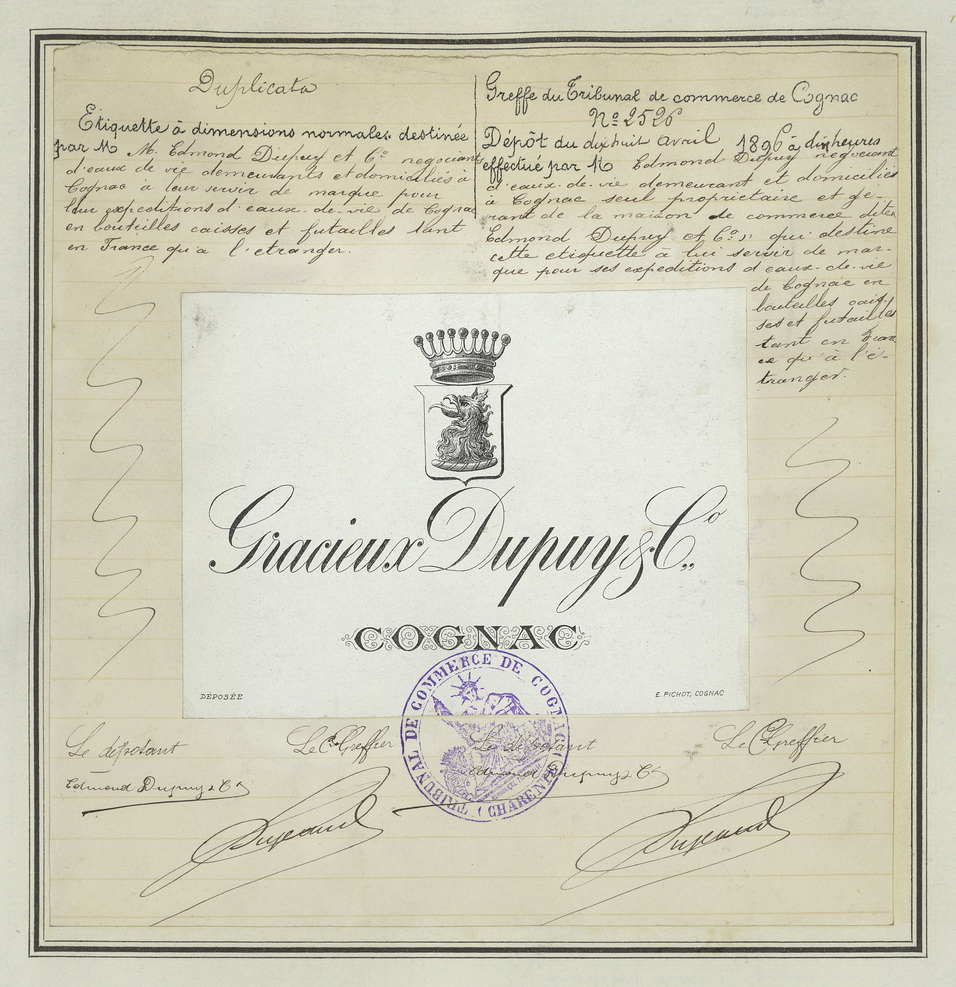 Duplicata
Etiquette à dimensions normales destinée
par M M. Edmond Dupuy et Cº negociants
d'eaux de vie demeurants et domiciliés à
Cognac à leur servir de marque pour
leur expeditions d'eaux-de-vie de Cognac
en bouteilles caisses et futailles tant
en France qu'a l'etranger.
Greffe du Tribunal de commerce de Cognac
Nº 2526
Dépôt du dix huit avril 1896 à dix heures
effectué par M Edmond Dupuy negociant
d'eaux-de-vie demeurant et domicilié
à Cognac seul propriétaire et gé-
rant de la maison de commerce dite
Edmond Dupuy et Cº qui destine
cette etiquette à lui servir de mar-
que pour ses expeditions d'eaux-de-vie
de Cognac en
bouteilles cais-
ses et futailles
tant en Fran-
ce qu'à l'é-
tranger.
Gracieux Dupuy & Cº
COGNAC
DÉPOSÉE
E. PICHOT, COGNAC
TRIBUNAL DE COMMERCE DE COGNAC (CHARENTE)
Le déposant
Le C. Greffier
Le déposant
Le C. Greffier
Edmond Dupuy & Cº
Edmond Dupuy & Cº